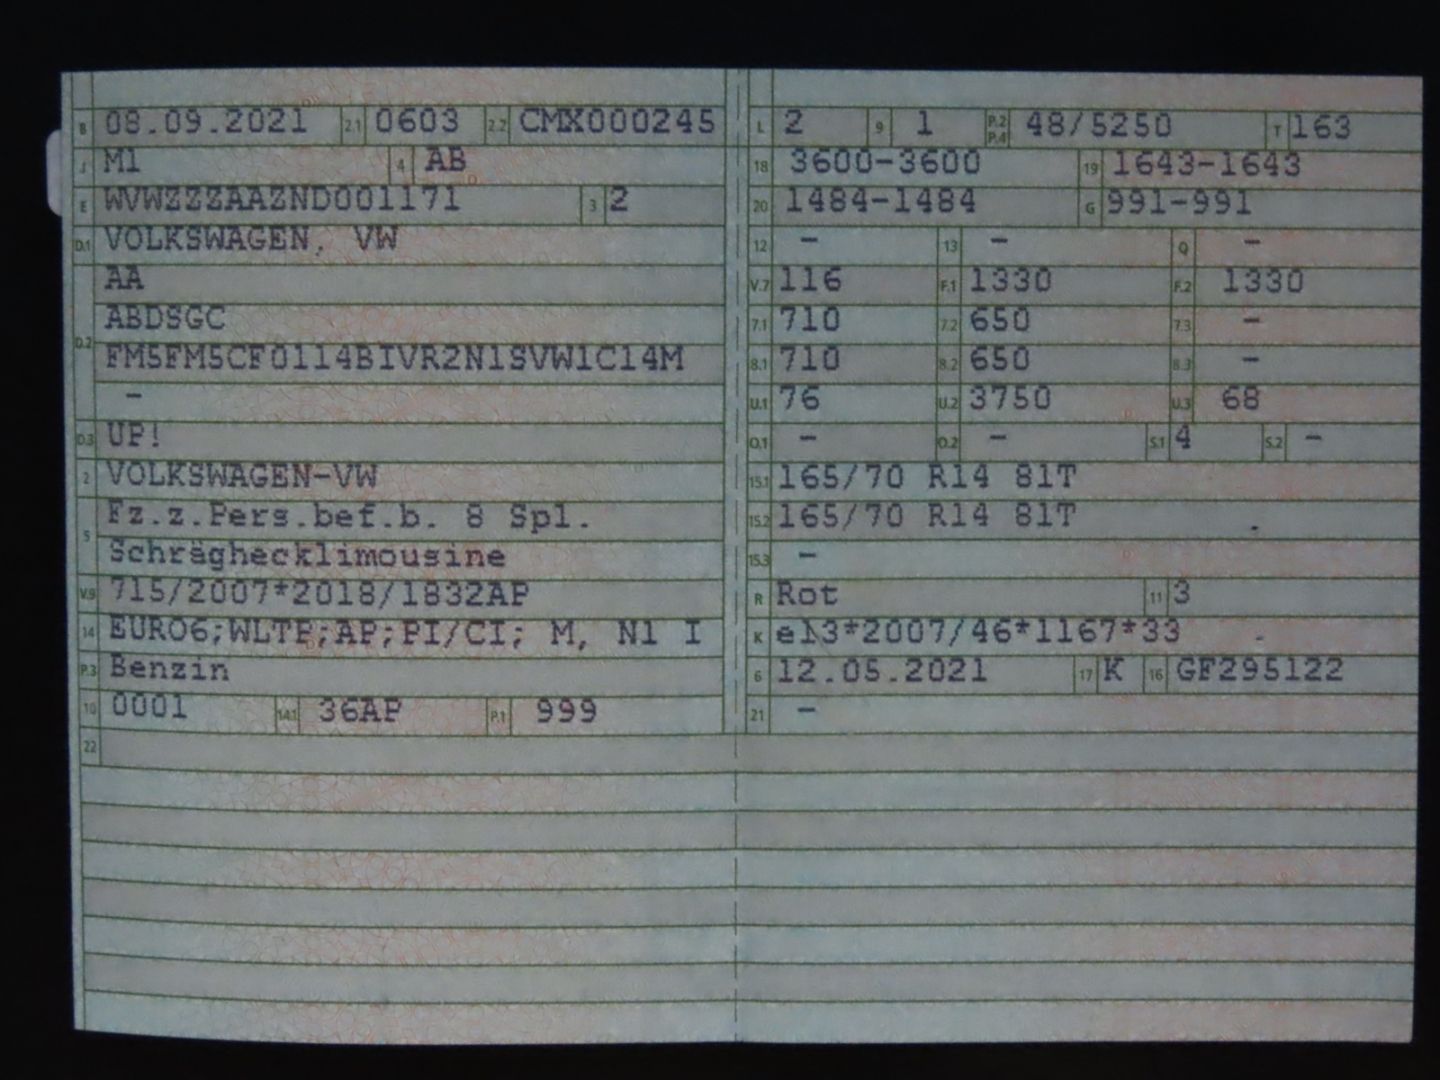 B 08.09.2021 2.1 0603 2.2 CMX000245
J M1 4 AB
E WVWZZZAAZND001171 3 2
D.1 VOLKSWAGEN, VW
AA
D.2 ABDSGC
FM5FM5CF0114BIVR2N1SVW1C14M
–
D.3 UP!
2 VOLKSWAGEN-VW
5 Fz.z.Pers.bef.b. 8 Spl.
Schräghecklimousine
V.9 715/2007*2018/1832AP
14 EURO6;WLTP;AP;PI/CI; M, N1 I
P.3 Benzin
10 0001 14.1 36AP P.1 999
22
L 2 9 1 P.2 P.4 48/5250 T 163
18 3600-3600 19 1643-1643
20 1484-1484 G 991-991
12 – 13 – Q –
V.7 116 F.1 1330 F.2 1330
7.1 710 7.2 650 7.3 –
8.1 710 8.2 650 8.3 –
U.1 76 U.2 3750 U.3 68
O.1 – O.2 – S.1 4 S.2 –
15.1 165/70 R14 81T
15.2 165/70 R14 81T
15.3 –
R Rot 11 3
K e13*2007/46*1167*33
6 12.05.2021 17 K 16 GF295122
21 –